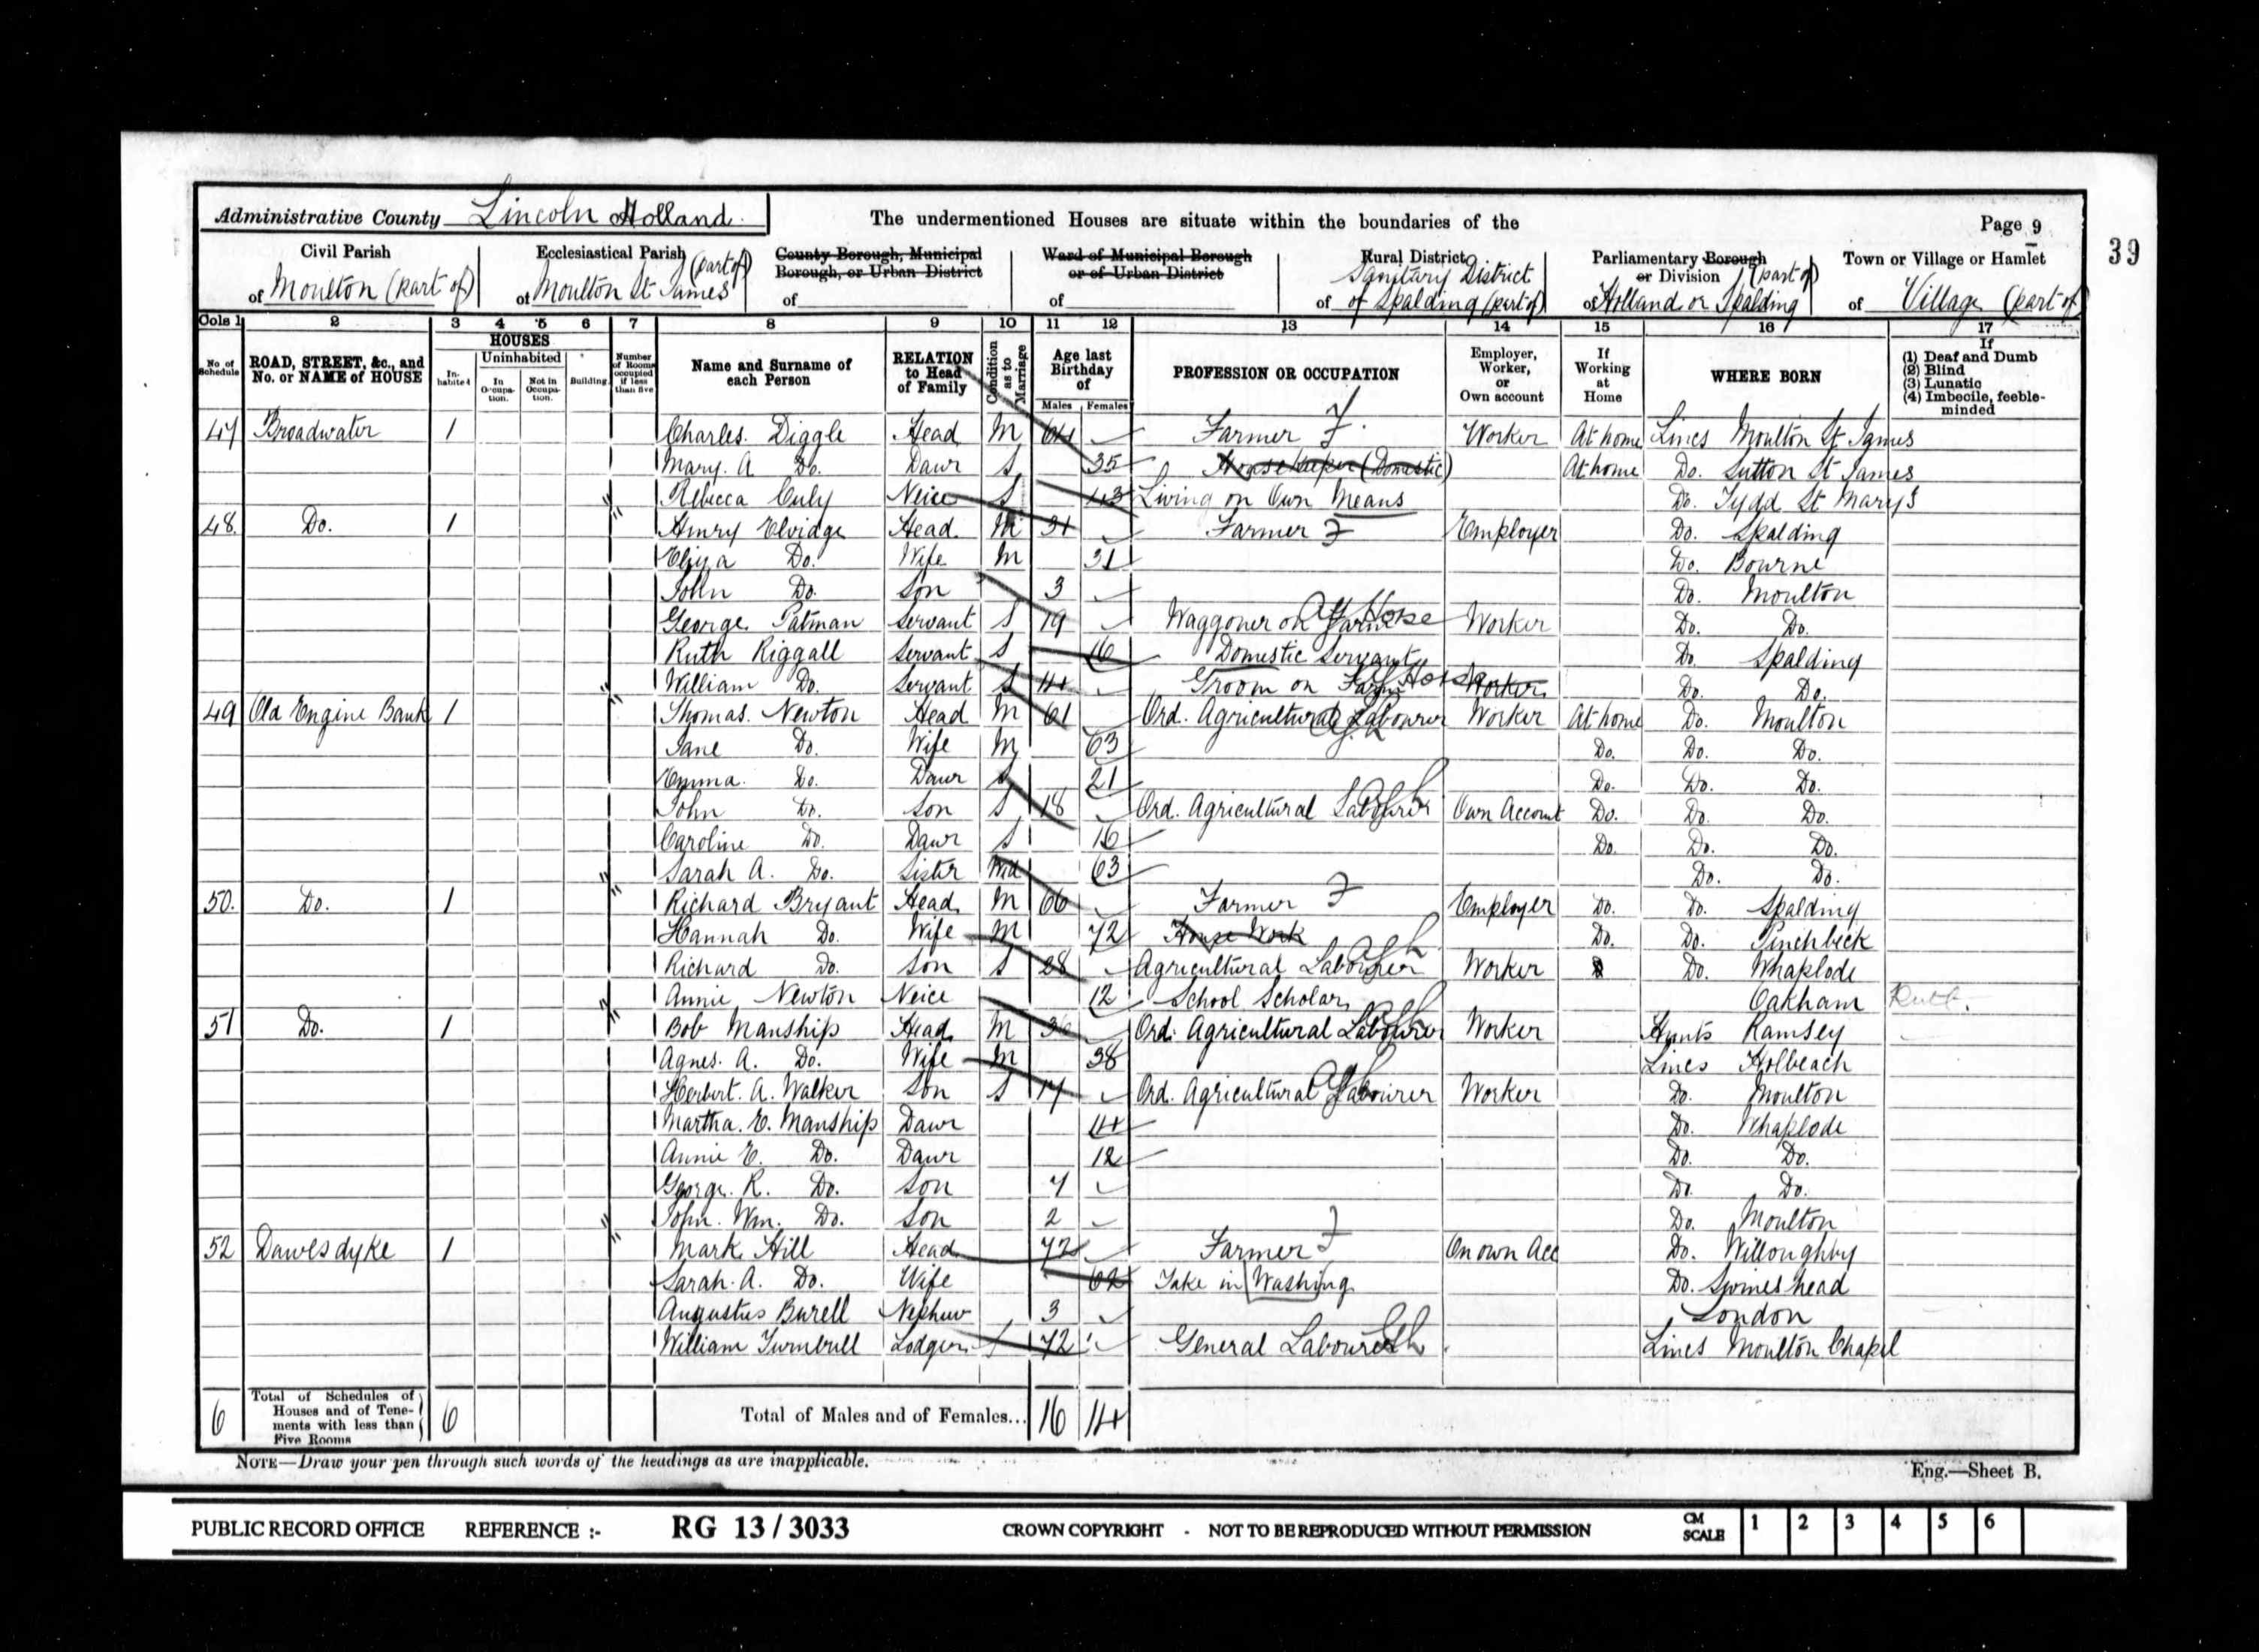 Administrative County Lincoln Holland. The undermentioned Houses are situate within the boundaries of the Page 9
39
Civil Parish of Moulton (part of)
Ecclesiastical Parish of Moulton St James (part of)
County Borough, Municipal Borough, or Urban District of
Ward of Municipal Borough or of Urban District of
Rural District of Sanitary District of Spalding (part of)
Parliamentary Borough or Division of Holland or Spalding (part of)
Town or Village or Hamlet of Village (part of)
Cols 1 2 3 4 5 6 7 8 9 10 11 12 13 14 15 16 17
No of Schedule
ROAD, STREET, &c., and No. or NAME of HOUSE
HOUSES
In-habited
Uninhabited
In Occupa-tion.
Not in Occupa-tion.
Building
Number of Rooms occupied if less than five
Name and Surname of each Person
RELATION to Head of Family
Condition as to Marriage
Age last Birthday of
Males Females
PROFESSION OR OCCUPATION
Employer, Worker, or Own account
If Working at Home
WHERE BORN
If (1) Deaf and Dumb (2) Blind (3) Lunatic (4) Imbecile, feeble-minded
47 Broadwater 1 Charles. Diggle Head M 64 Farmer F Worker At home Lincs Moulton St James
Mary. A Do. Dawr S 35 Housekeeper (Domestic) At home Do. Sutton St James
Rebecca Culy Neice S 43 Living on Own Means Do. Tydd St Mary's
48. Do. 1 Henry Elvidge Head M 31 Farmer F Employer Do. Spalding
Eliza Do. Wife M 31 Do. Bourne
John Do. Son 3 Do. Moulton
George Patman Servant S 19 Waggoner on Farm Horse Worker Do. Do.
Ruth Riggall Servant S 16 Domestic Servant Do. Spalding
William Do. Servant S 14 Groom on Farm Horse Worker Do. Do.
49 Old Engine Bank 1 Thomas. Newton Head M 61 Ord. Agricultural Labourer Worker At home Do. Moulton
Jane Do. Wife M 63 Do. Do. Do.
Emma. Do. Dawr S 21 Do. Do. Do.
John Do. Son S 18 Ord. Agricultural Labourer Own Account Do. Do. Do.
Caroline Do. Dawr S 16 Do. Do. Do.
Sarah A. Do. Sister Wid 63 Do. Do.
50. Do. 1 Richard Bryant Head M 66 Farmer F Employer Do. Do. Spalding
Hannah Do. Wife M 72 House Work Do. Do. Pinchbeck
Richard Do. Son S 28 Agricultural Labourer Worker Do. Whaplode
Annie Newton Neice 12 School Scholar Oakham Rutl.
51 Do. 1 Bob Manship Head M 36 Ord. Agricultural Labourer Worker Hunts Ramsey
Agnes. A. Do. Wife M 38 Lincs Holbeach
Herbert. A. Walker Son S 17 Ord. Agricultural Labourer Worker Do. Moulton
Martha. E. Manship Dawr 14 Do. Whaplode
Annie E. Do. Dawr 12 Do. Do.
George. R. Do. Son 7 Do. Do.
John. Wm. Do. Son 2 Do. Moulton
52 Dawesdyke 1 Mark Hill Head 72 Farmer F On own Acc Do. Willoughby
Sarah. A. Do. Wife 62 Take in Washing Do. Swineshead
Augustus Burell Nephew 3 London
William Turnbull Lodger S 72 General Labourer Lincs Moulton Chapel
6 Total of Schedules of Houses and of Tene-ments with less than Five Rooms 6 Total of Males and of Females... 16 14
NOTE—Draw your pen through such words of the headings as are inapplicable.
Eng.—Sheet B.
PUBLIC RECORD OFFICE REFERENCE :- RG 13 / 3033 CROWN COPYRIGHT - NOT TO BE REPRODUCED WITHOUT PERMISSION CM SCALE 1 2 3 4 5 6